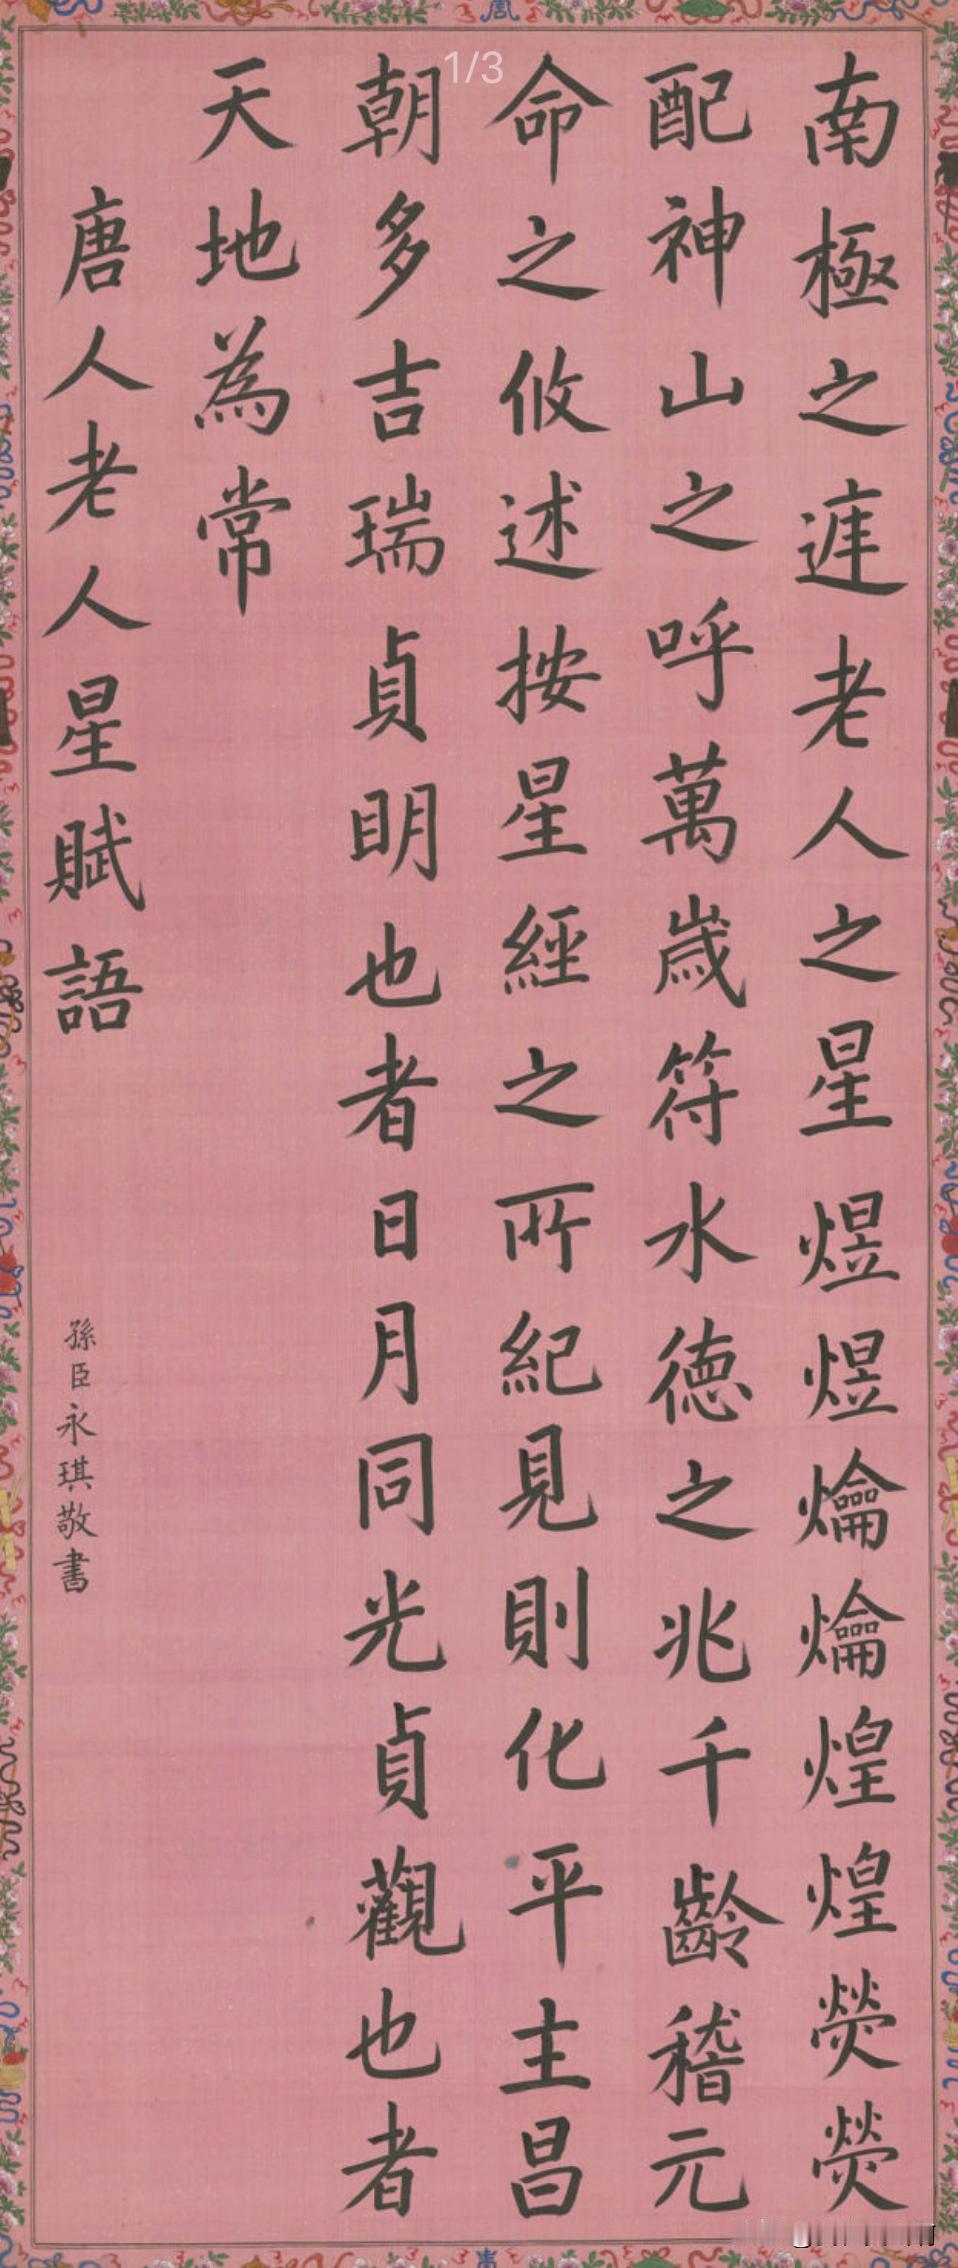 南極之䢔老人之星煜煜爚爚煌煌熒熒
配神山之呼萬歲符水德之兆千齡稽元
命之攸述按星經之所紀見則化平主昌
朝多吉瑞貞明也者日月同光貞觀也者
天地為常
唐人老人星賦語
孫臣永琪敬書
1/3